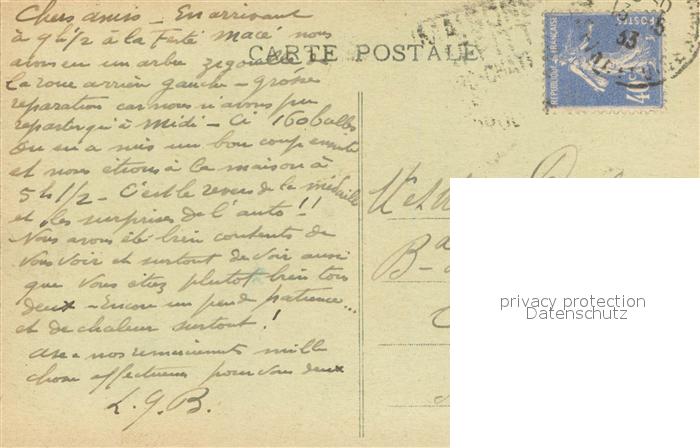 Chers amis – En arrivant
à 9h 1/2 à la Ferté Macé nous
avons eu un arbre
la roue arrière gauche – grosse
réparation car nous n'avons pu
repartir qu'à midi – Ci 160 balles
On en a mis un bon coup ensuite
et nous étions à la maison à
5h 1/2 – C'est le revers de la médaille
et les surprises de l'auto !!
Nous avons été bien contents de
vous voir et surtout de voir aussi
que vous étiez plutôt bien tous
deux – Encore un peu de patience...
et de chaleur surtout !
Avec nos remerciements mille
choses affectueuses pour vous deux
L. G. B.
CARTE POSTALE
POSTES
REPUBLIQUE FRANÇAISE
40c
33
privacy protection
Datenschutz